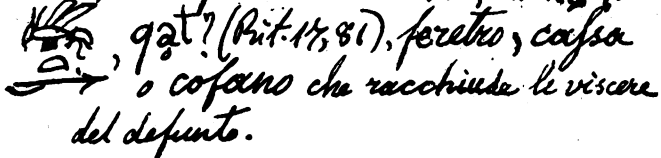 , qat? (Rit. 17, 81), feretro, cassa
o cofano che racchiude le viscere
del defunto.